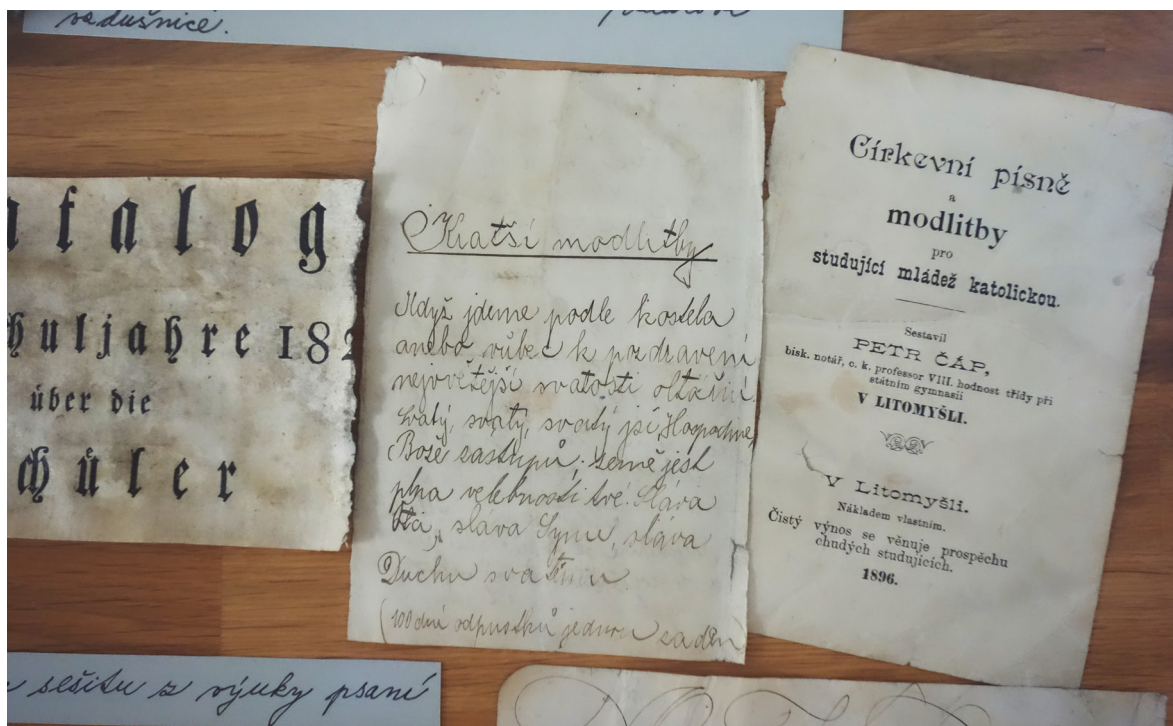 vzdušnice.
atalog
huljahre 182
über die
chüler
Kratší modlitby
Když jdeme podle kostela
anebo vůbec k pozdravení
nejsvětější svatosti oltářní.
Svatý, svatý, svatý jsi, Hospodine,
Bože zástupů; země jest
plna velebnosti tvé. Sláva
Otci, sláva Synu, sláva
Duchu svatému
(100 dní odpustků jednou za den)
Církevní písně
a
modlitby
pro
studující mládež katolickou.
Sestavil
PETR ČÁP,
bisk. notář, c. k. professor VIII. hodnost třídy při
státním gymnasii
V LITOMYŠLI.
V Litomyšli.
Nákladem vlastním.
Čistý výnos se věnuje prospěchu
chudých studujících.
1896.
sešitu z výuky psaní